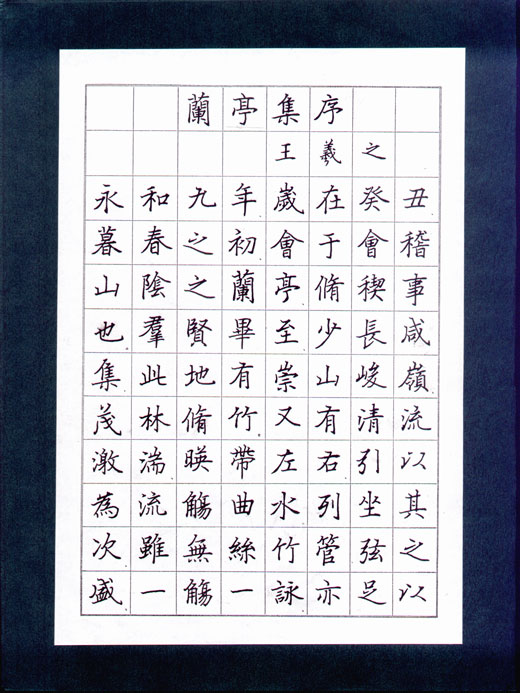 蘭亭集序
王羲之
永和九年歲在癸丑
暮春之初會于會稽
山陰之蘭亭脩稧事
也羣賢畢至少長咸
集此地有崇山峻嶺
茂林脩竹又有清流
激湍暎帶左右引以
為流觴曲水列坐其
次雖無絲竹管弦之
盛一觴一詠亦足以